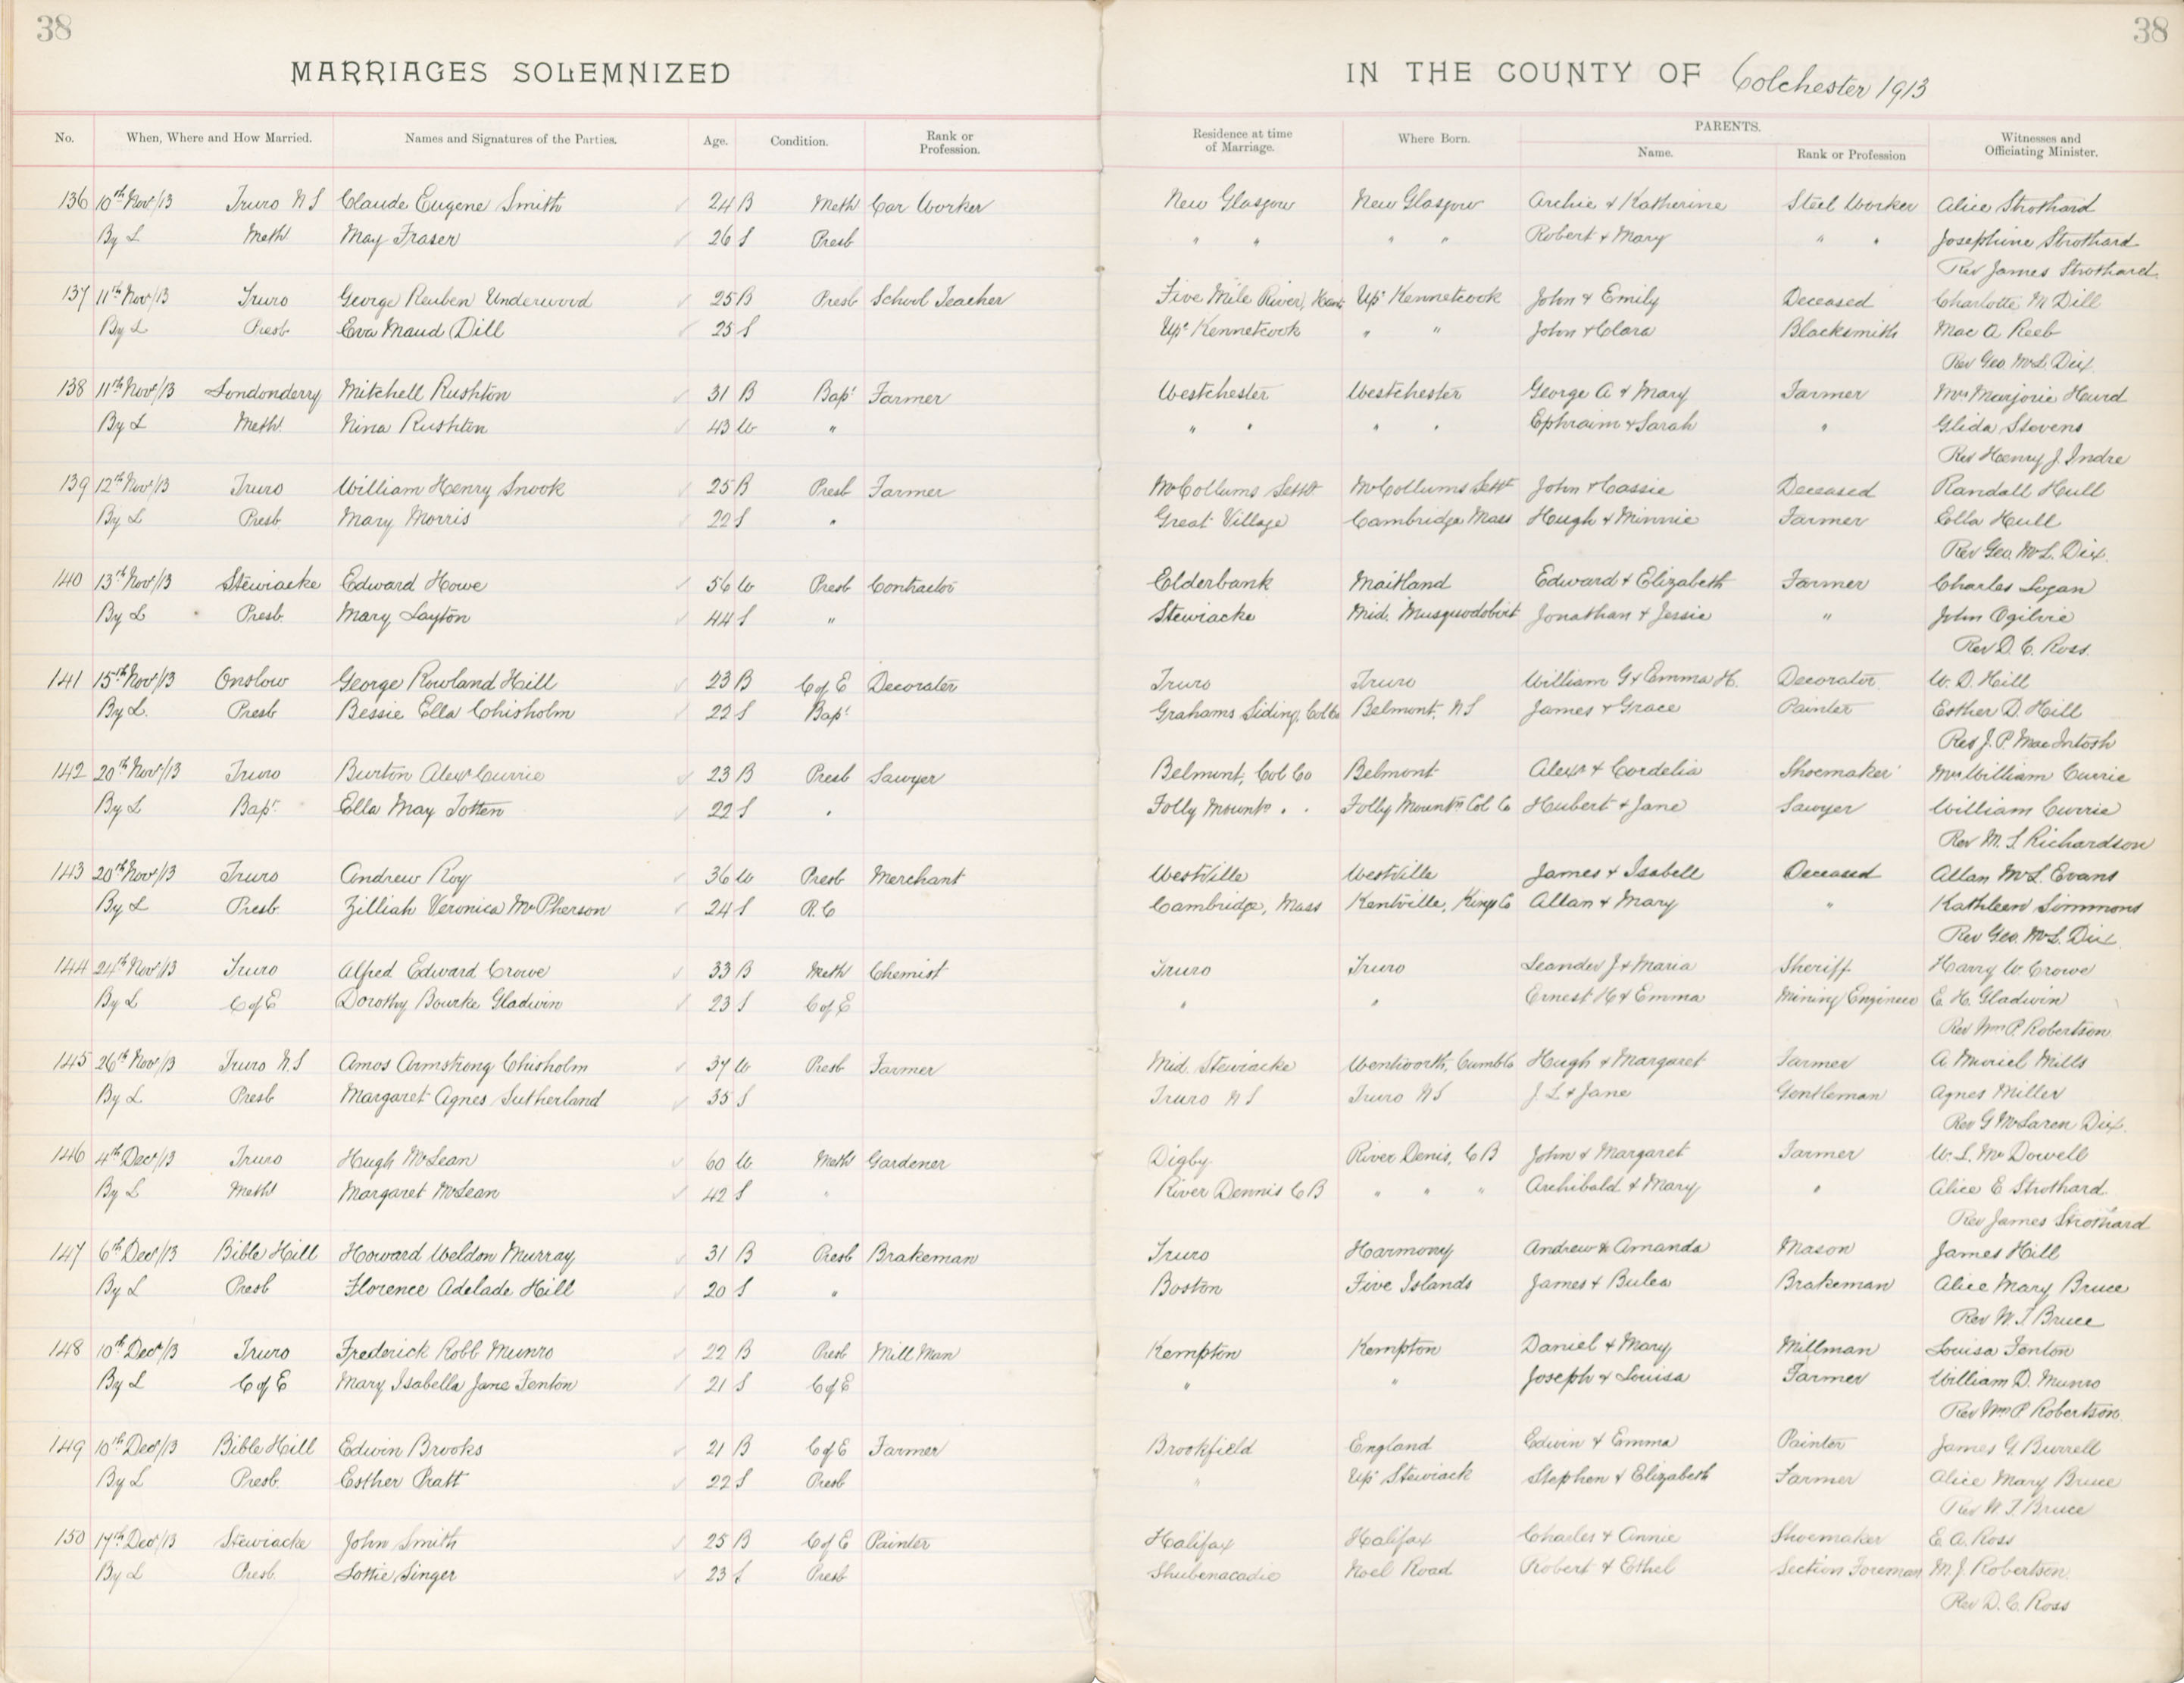 38
38
MARRIAGES SOLEMNIZED IN THE COUNTY OF Colchester 1913
No. When, Where and How Married. Names and Signatures of the Parties. Age. Condition. Rank or Profession. Residence at time of Marriage. Where Born. PARENTS. Name. Rank or Profession Witnesses and Officiating Minister.
136 10th Nov/13 Truro N S Claude Eugene Smith 24 B Meth Car Worker New Glasgow New Glasgow Archie & Katherine Steel Worker Alice Strothard
By L Meth May Fraser 26 S Presb " " " " Robert & Mary " " Josephine Strothard
Rev James Strothard
137 11th Nov/13 Truro George Reuben Underwood 25 B Presb School Teacher Five Mile River, Hants Upr Kennetcook John & Emily Deceased Charlotte M Dill
By L Presb Eva Maud Dill 25 S Upr Kennetcook " " John & Clara Blacksmith Mac A Reeb
Rev Geo. McL. Dix.
138 11th Nov/13 Londonderry Mitchell Rushton 31 B Bapt Farmer Westchester Westchester George A & Mary Farmer Mrs Marjorie Hurd
By L Meth. Nina Rushton 43 W " " " " " Ephraim & Sarah " Glida Stevens
Rev Henry J. Indre
139 12th Nov/13 Truro William Henry Snook 25 B Presb Farmer McCollums Settt McCollums Settt John & Cassie Deceased Randall Hull
By L Presb Mary Morris 22 S " Great Village Cambridge Mass Hugh & Minnie Farmer Ella Hull
Rev Geo. McL. Dix.
140 13th Nov/13 Stewiacke Edward Howe 56 W Presb Contractor Elderbank Maitland Edward & Elizabeth Farmer Charles Logan
By L Presb. Mary Layton 44 S " Stewiacke Mid. Musquodobit Jonathan & Jessie " John Ogilvie
Rev D. C. Ross.
141 15th Nov/13 Onslow George Rowland Hill 23 B C of E Decorater Truro Truro William G & Emma H. Decorator W. D. Hill
By L. Presb Bessie Ella Chisholm 22 S Bapt Grahams Siding, Col Co Belmont, N S James & Grace Painter Esther D. Hill
Rev J. P. MacIntosh
142 20th Nov/13 Truro Burton Alexr Currie 23 B Presb Sawyer Belmont, Col Co Belmont Alexr & Cordelia Shoemaker Mrs William Currie
By L Bapt Ella May Totten 22 S " Folly Mountn " " Folly Mountn Col Co Hubert & Jane Sawyer William Currie
Rev M. S. Richardson
143 20th Nov/13 Truro Andrew Roy 36 W Presb Merchant Westville Westville James & Isabell Deceased Allan McL. Evans
By L Presb Zilliah Veronica McPherson 24 S R. C Cambridge, Mass Kentville, Kings Co Allan & Mary " Kathleen Simmons
Rev Geo. McL. Dix
144 24th Nov/13 Truro Alfred Edward Crowe 33 B Meth Chemist Truro Truro Leander J & Maria Sheriff Harry W. Crowe
By L C of E Dorothy Bourke Gladwin 23 S C of E " " Ernest H & Emma Mining Engineer E. H. Gladwin
Rev Wm P. Robertson
145 26th Nov/13 Truro N. S Amos Armstrong Chisholm 37 W Presb Farmer Mid. Stewiacke Wentworth, Cumb Co Hugh & Margaret Farmer A. Muriel Mills
By L Presb Margaret Agnes Sutherland 35 S Truro N S Truro N S J. L & Jane Gentleman Agnes Miller
Rev G McLaren Dix.
146 4th Decr/13 Truro Hugh McLean 60 W Meth Gardener Digby River Denis, C B John & Margaret Farmer W. L. McDowell
By L Meth Margaret McLean 42 S " River Dennis C B " " " Archibald & Mary " Alice E Strothard
Rev James Strothard
147 6th Decr/13 Bible Hill Howard Weldon Murray 31 B Presb Brakeman Truro Harmony Andrew & Amanda Mason James Hill
By L Presb Florence Adelade Hill 20 S " Boston Five Islands James & Bulea Brakeman Alice Mary Bruce
Rev W. T. Bruce
148 10th Decr/13 Truro Frederick Robb Munro 22 B Presb Mill Man Kempton Kempton Daniel & Mary Millman Louisa Fenton
By L C of E Mary Isabella Jane Fenton 21 S C of E " " Joseph & Louisa Farmer William D. Munro
Rev Wm P Robertson
149 10th Decr/13 Bible Hill Edwin Brooks 21 B C of E Farmer Brookfield England Edwin & Emma Painter James G. Burrell
By L Presb. Esther Pratt 22 S Presb " Upr Stewiack Stephen & Elizabeth Farmer Alice Mary Bruce
Rev W. T. Bruce
150 17th Decr/13 Stewiacke John Smith 25 B C of E Painter Halifax Halifax Charles & Annie Shoemaker E. A. Ross
By L Presb. Lottie Singer 23 S Presb Shubenacadie Noel Road Robert & Ethel Section Foreman M. J. Robertson.
Rev D. C. Ross